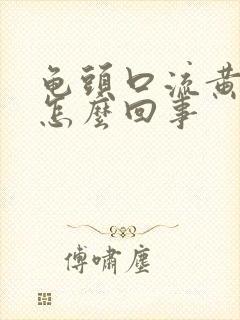 龟頭口流黄
怎麼回事
傅嘯塵